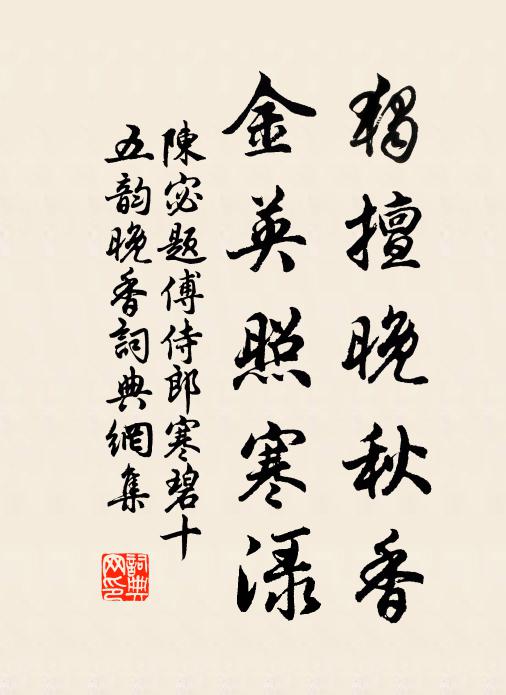 獨擅晚秋香
金英照寒渌
陳宓題傅侍郎寒碧十
五韵晚香詞典網集
詞典
网印